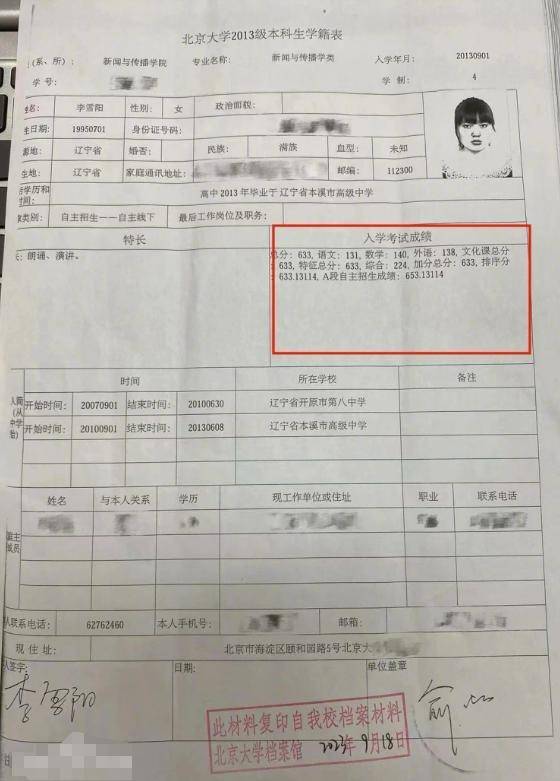 北京大学2013级本科生学籍表
(系、所): 新闻与传播学院 专业名称: 新闻与传播学类 入学年月: 20130901
学号: 学制: 4
姓名: 李雪阳 性别: 女 政治面貌:
生日期: 19950701 身份证号码:
辽宁省 婚否: 民族: 满族 血型: 未知
生地: 辽宁省 家庭通讯地址: 邮编: 112300
学历和时间: 高中2013年毕业于辽宁省本溪市高级中学
类别: 自主招生——自主线下 最后工作岗位及职务:
特长 入学考试成绩
长: 朗诵、演讲。
总分: 633, 语文: 131, 数学: 140, 外语: 138, 文化课总分
: 633, 特征总分: 633, 综合: 224, 加分总分: 633, 排序分
: 653.13114, A段自主招生成绩: 653.13114
时间 所在学校 备注
开始时间: 20070901 结束时间: 20100630 辽宁省开原市第八中学
开始时间: 20100901 结束时间: 20130608 辽宁省本溪市高级中学
(从中学始)
姓名 与本人关系 学历 现工作单位或住址 职业 联系电话
主
成员
人联系电话: 62762460 本人手机号: 邮箱:
现住址: 北京市海淀区颐和园路5号北京大
人签字: 日期: 单位盖章
李雪阳
此材料复印自我校档案材料
北京大学档案馆 2023年9月18日